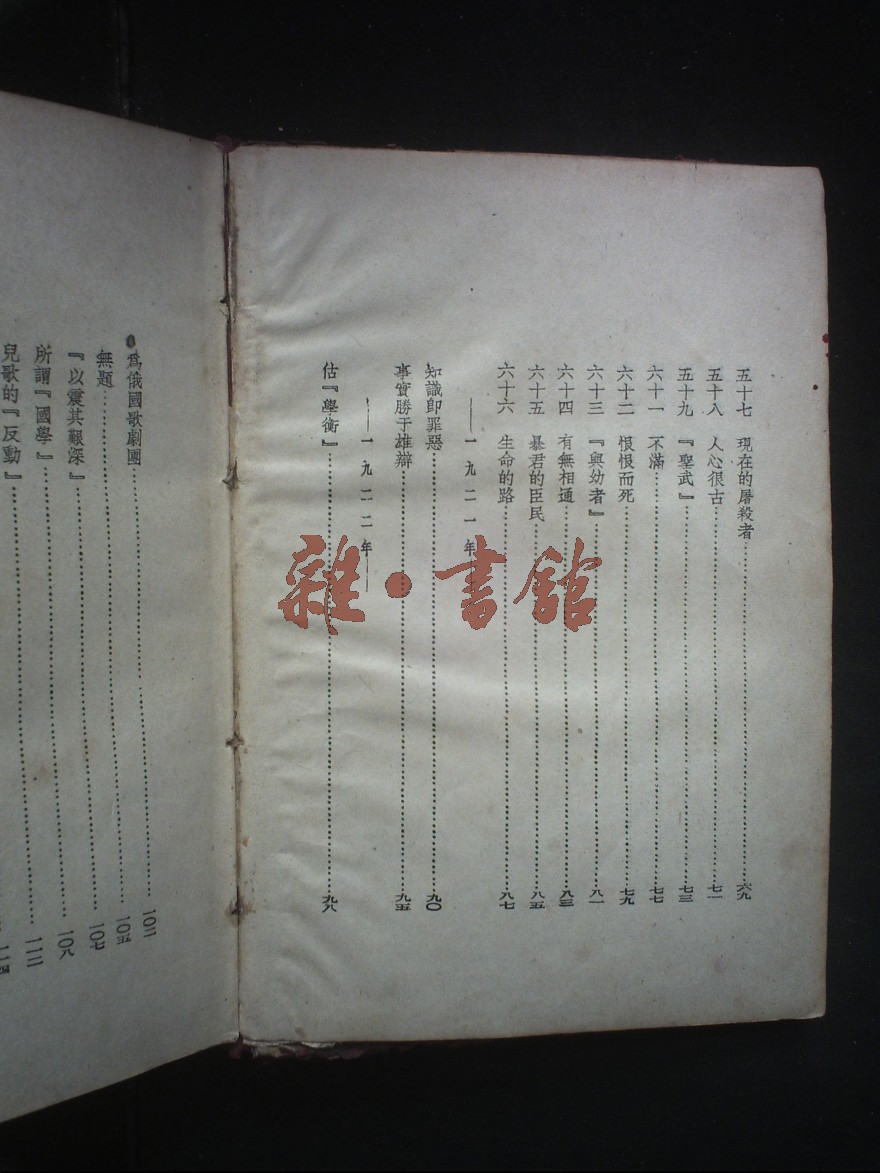 五十七 現在的屠殺者……六九
五十八 人心很古……七一
五十九 『聖武』……七三
六十一 不滿……七七
六十二 恨恨而死……七九
六十三 『與幼者』……八一
六十四 有無相通……八三
六十五 暴君的臣民……八五
六十六 生命的路……八七
——一九二一年——
知識即罪惡……九〇
事實勝于雄辯……九五
——一九二二年——
估『學衡』……九八
爲俄國歌劇團……一〇二
無題……一〇五
『以震其艱深』……一〇七
所謂『國學』……一〇八
兒歌的『反動』……一一二
一一四
雜·書館